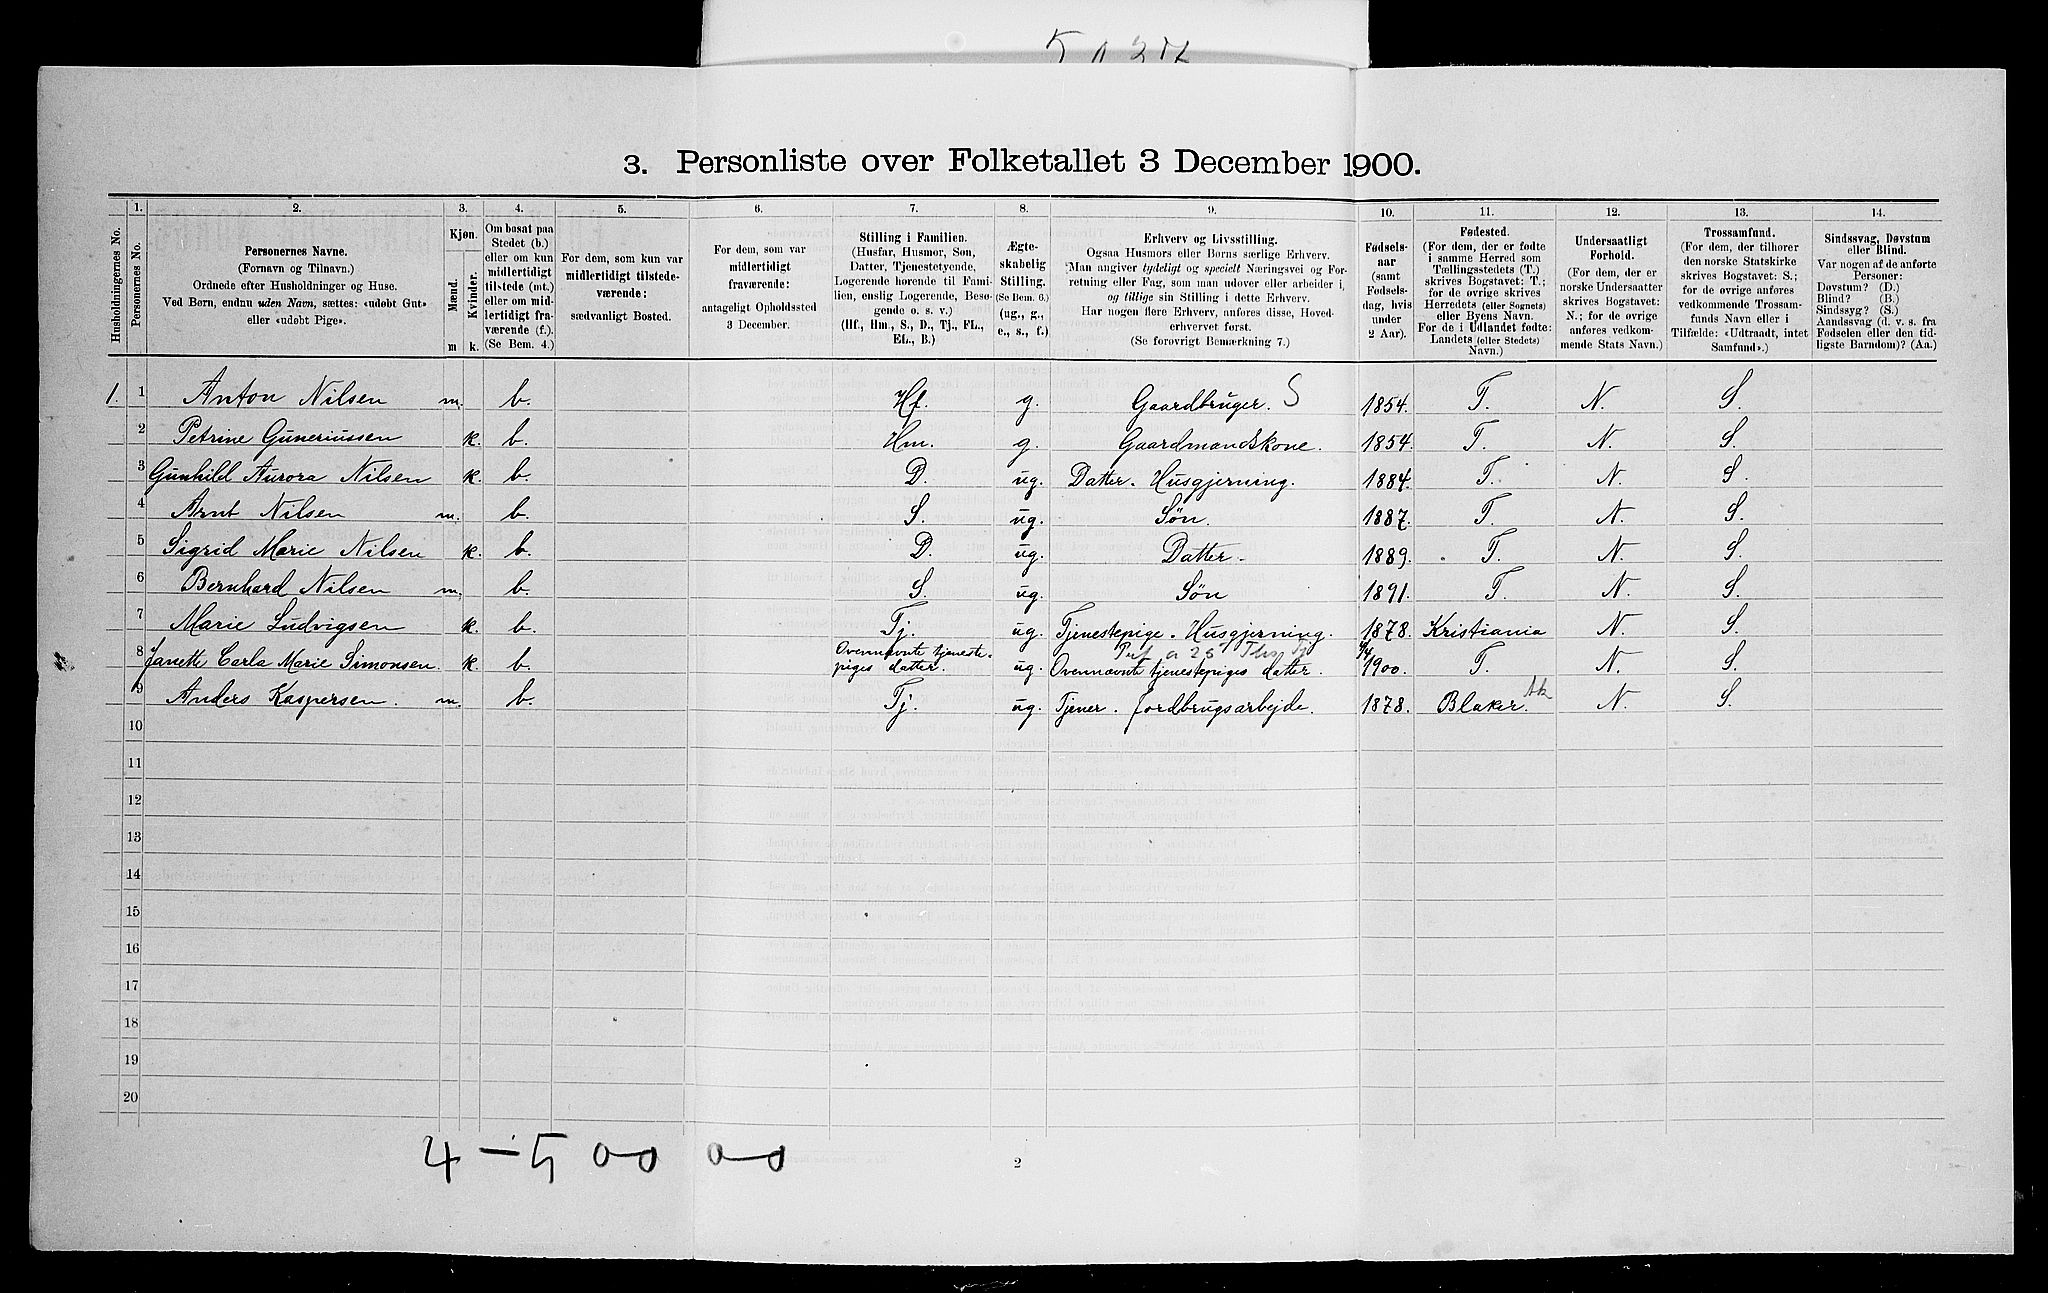 3. Personliste over Folketallet 3 December 1900.
Husholdningernes No.
1.
Personernes No.
2.
Personernes Navne.
(Fornavn og Tilnavn.)
Ordnede efter Husholdninger og Huse.
Ved Børn, endnu uden Navn, sættes: «udøbt Gut»
eller «udøbt Pige».
3.
Kjøn.
Mænd.
m
Kvinder.
k.
4.
Om bosat paa
Stedet (b.)
eller om kun
midlertidigt
tilstede (mt.)
eller om mid-
lertidigt fra-
værende (f.).
(Se Bem. 4.)
5.
For dem, som kun var
midlertidigt tilstede-
værende:
sædvanligt Bosted.
6.
For dem, som var
midlertidigt
fraværende:
antageligt Opholdssted
3 December.
7.
Stilling i Familien.
(Husfar, Husmor, Søn,
Datter, Tjenestetyende,
Logerende hørende til Fami-
lien, enslig Logerende, Besø-
gende o. s. v.)
(Hf., Hm., S., D., Tj., FL.,
EL., B.)
8.
Ægte-
skabelig
Stilling.
(Se Bem. 6.)
(ug., g.,
e., s., f.)
9.
Erhverv og Livsstilling.
Ogsaa Husmors eller Børns særlige Erhverv.
Man angiver tydeligt og specielt Næringsvei og For-
retning eller Fag, som man udover eller arbeider i,
og tillige sin Stilling i dette Erhverv.
Har nogen flere Erhverv, anføres disse, Hoved-
erhvervet først.
(Se forøvrigt Bemærkning 7.)
10.
Fødsels-
aar
(samt
Fødsels-
dag, hvis
under
2 Aar).
11.
Fødested.
(For dem, der er fødte
i samme Herred som
Tællingsstedets (T.)
skrives Bogstavet: T.;
for de øvrige skrives
Herredets (eller Sognets)
eller Byens Navn.
For de i Udlandet fødte:
Landets (eller Stedets)
Navn.)
12.
Undersaatligt
Forhold.
(For dem, der er
norske Undersaatter
skrives Bogstavet:
N.; for de øvrige
anføres vedkom-
mende Stats Navn.)
13.
Trossamfund.
(For dem, der tilhører
den norske Statskirke
skrives Bogstavet: S.;
for de øvrige anføres
vedkommende Trossam-
funds Navn eller i
Tilfælde: «Udtraadt, intet
Samfund».)
14.
Sindssvag, Døvstum
eller Blind.
Var nogen af de anførte
Personer:
Døvstum? (D.)
Blind? (B.)
Sindssyg? (S.)
Aandssvag (d. v. s. fra
Fødselen eller den tid-
ligste Barndom)? (Aa.)
1. 1 Anton Nilsen m. b. Hf. g. Gaardbruger. S 1854. T. N. S.
2 Petrine Guneriussen k. b. Hm. g. Gaardmandskone. 1854. T. N. S.
3 Gunhild Aurora Nilsen k. b. D. ug. Datter. Husgjerning. 1884. T. N. S.
4 Arnt Nilsen m. b. S. ug. Søn. 1887. T. N. S.
5 Sigrid Marie Nilsen k. b. D. ug. Datter. 1889. T. N. S.
6 Bernhard Nilsen m. b. S. ug. Søn 1891. T. N. S.
7 Marie Ludvigsen k. b. Tj. ug. Tjenestepige. Husgjerning. 1878. Kristiania N. S.
8 Janette Carla Marie Simonsen. k. b. Ovennævnte tjeneste-
piges datter. ug. Ovennævnte tjenestepiges datter. 1900. T. N. S.
9 Anders Kaspersen. m. b. Tj. ug. Tjener. jordbrugsarbejde. 1878. Blaker. Ak N. S.
10
11
12
13
14
15
16
17
18
19
20
4 – 5 00 00
2